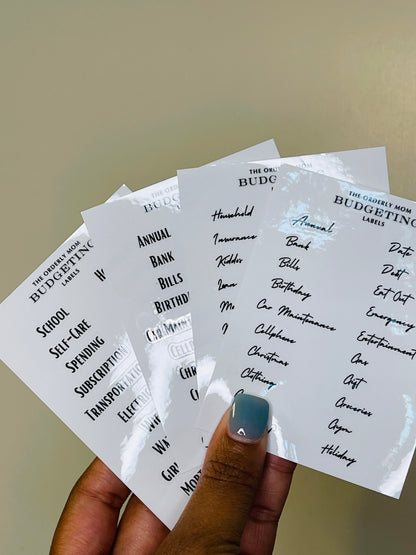 THE ORDERLY MOM
BUDGETING
LABELS
SCHOOL
SELF-CARE
SPENDING
SUBSCRIPTION
TRANSPORTATI
ELECTRI
BUDGETIN
ANNUAL
BANK
BILLS
BIRTHD
CAR MAIN
CELL
CHR
CL
GIR
MOR
THE ORDERLY MOM
BUDGETING
LABELS
Household
Insurance
Kiddos
THE ORDERLY MOM
BUDGETING
LABELS
Annual
Bank
Bills
Birthday
Car Maintenance
Cellphone
Christmas
Clothing
Date
Debt
Eat Out
Emergenc
Entertainment
Gas
Gift
Groceries
Gym
Holiday